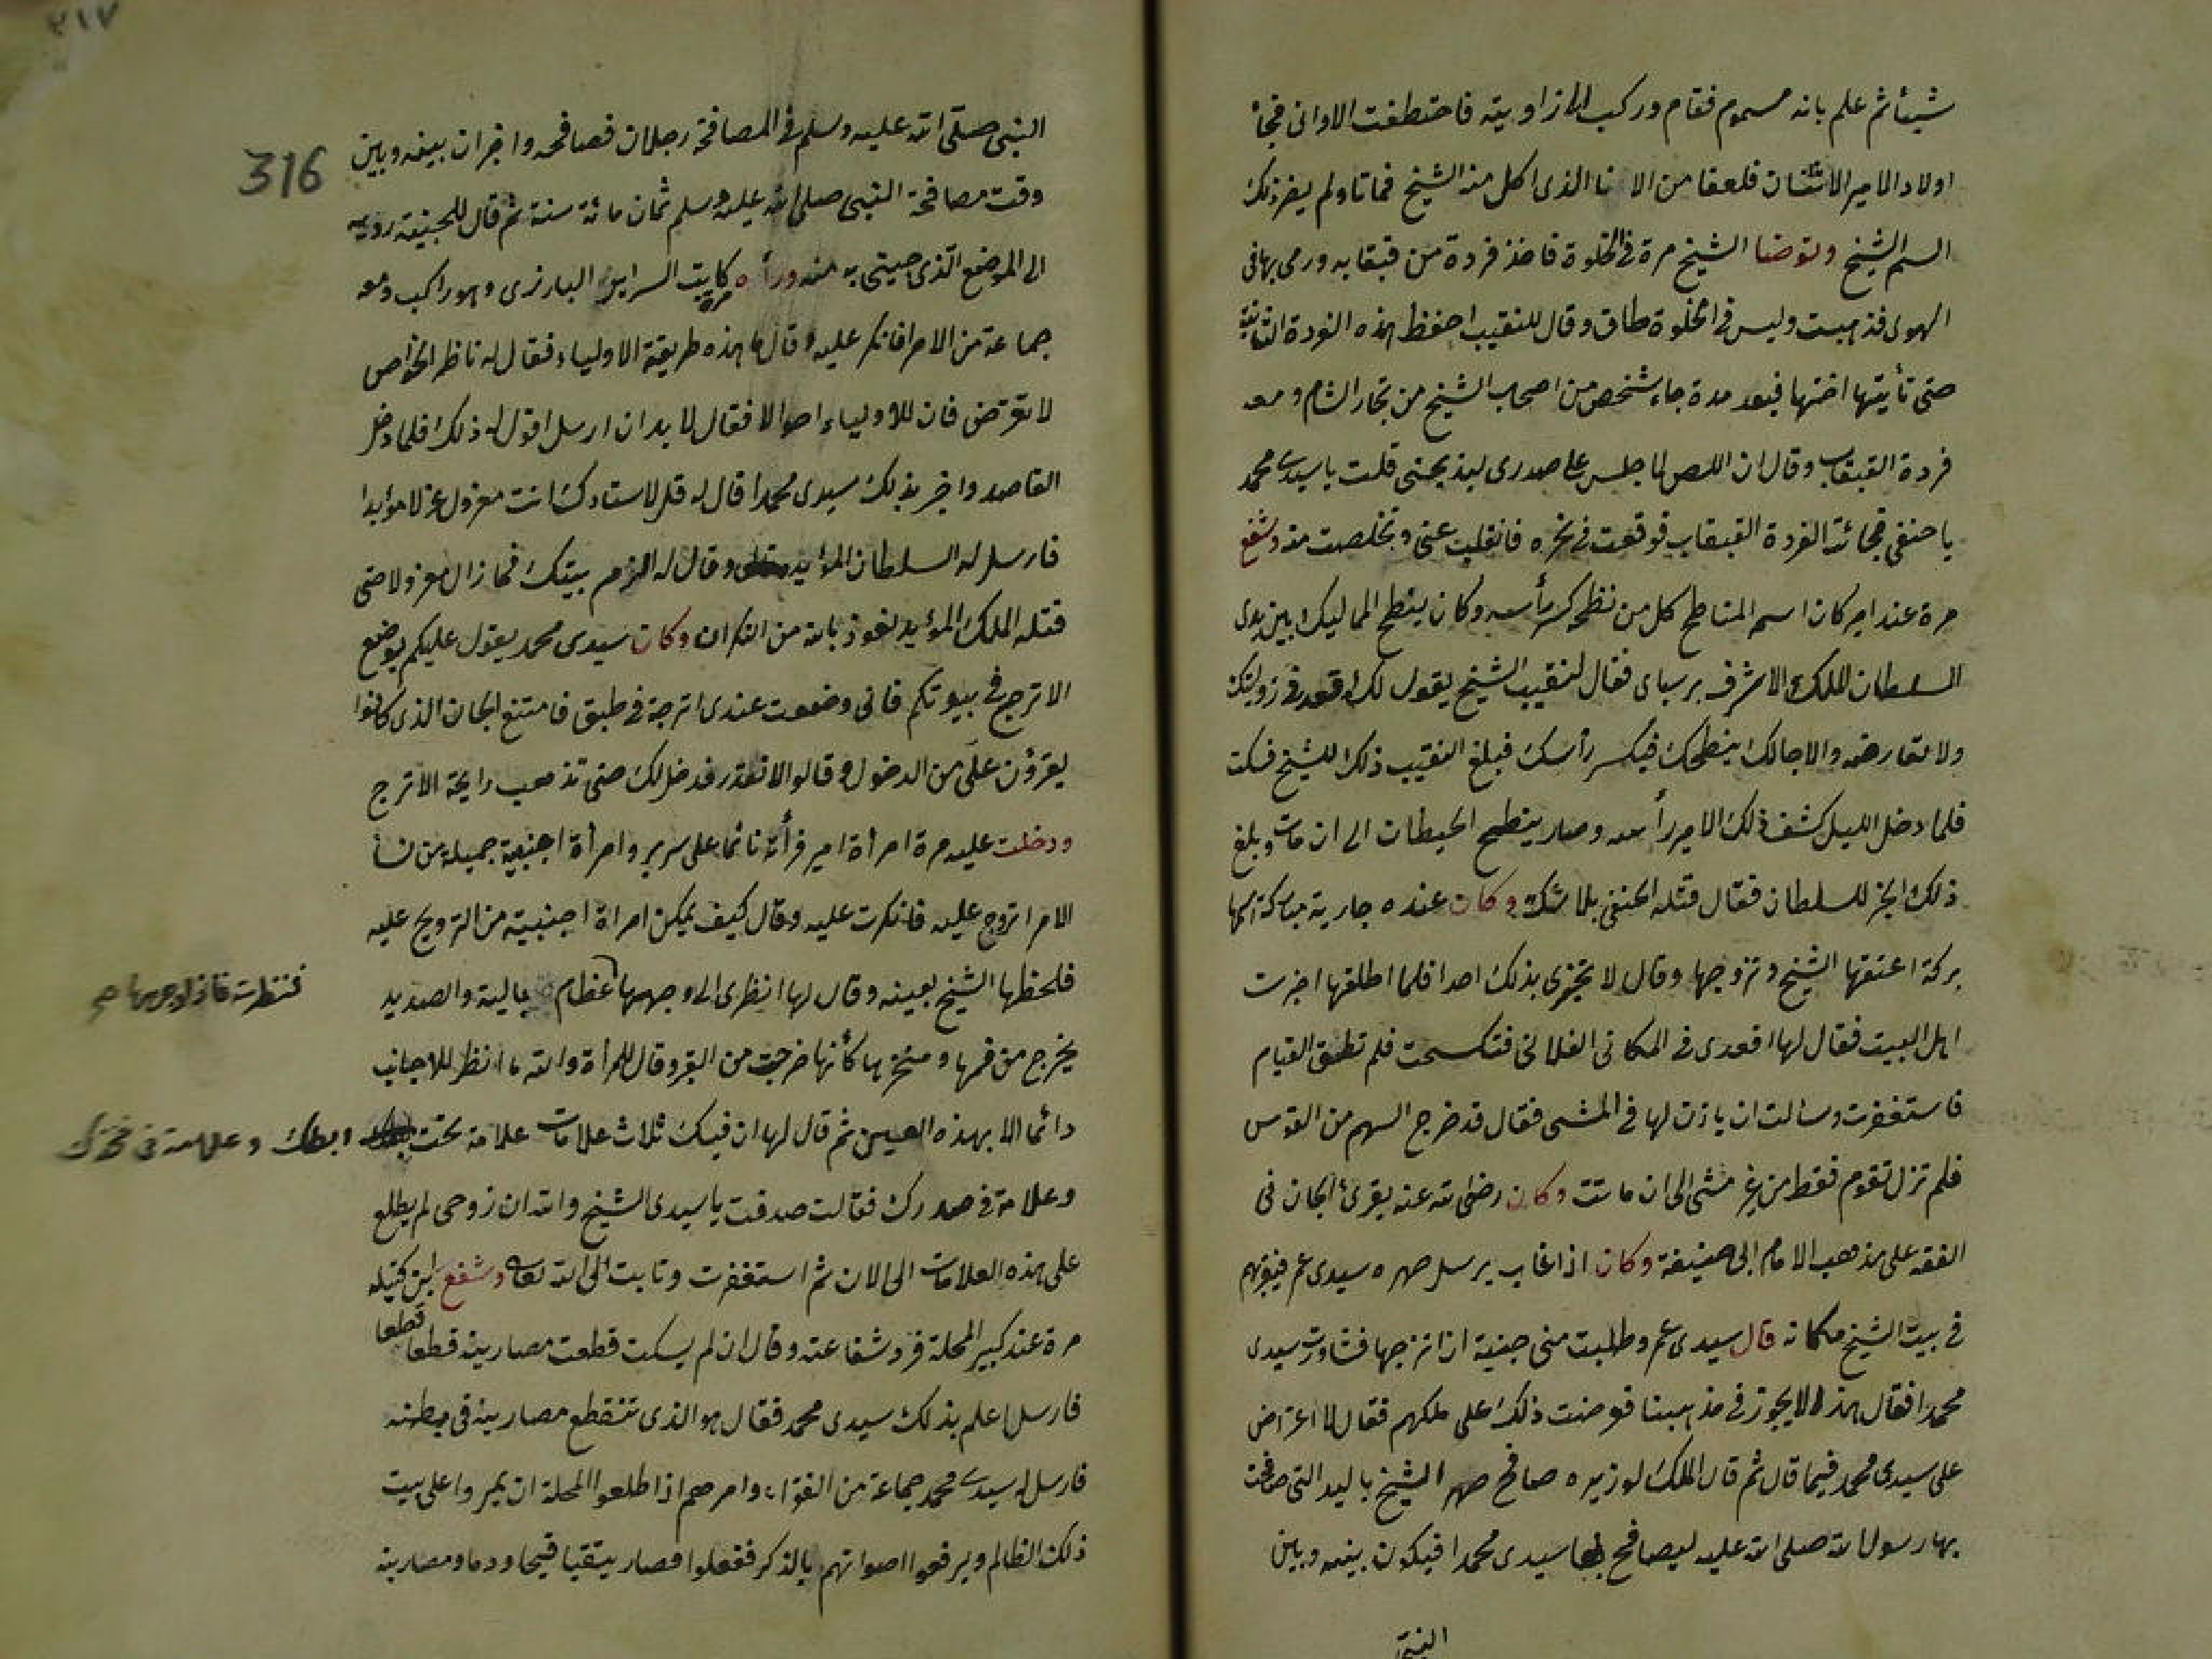 شيئا ثم علم بانه مسموم فقام وركب الى زاويته فاختطفت الاوانى فجأ
اولاد الامير الاثنان فلعقا من الانا الذى اكل منه الشيخ فماتا ولم يضر ذلك
السم الشيخ وتوضا الشيخ مرة فى الخلوة فاخذ فردة من قبقابه ورمى بها فى
الهوى فذهبت وليس فى الخلوة طاق وقال للنقيب احفظ هذه الفردة الثانية
حتى تأيتها اختها فبعد مدة جاء شخص من اصحاب الشيخ من تجار الشام ومعه
فردة القبقاب وقال ان اللص لما جلس على صدرى ليذبحنى قلت يا سيدى محمد
يا حنفى فجائت الفردة القبقاب فوقعت فى نحره فانقلب عنى وتخلصت منه وشفع
مرة عند امير كان اسمه المناطح كل من نطحه كسر رأسه وكان ينطح المماليك بين يدى
السلطان الملك الاشرف برسباى فقال لنقيب الشيخ يقول لك اقعد فى زويتك
ولا تعارضه والا جالك ينطحك فيكسر رأسك فبلغ النقيب ذلك للشيخ فسكت
فلما دخل الليل كشف ذلك الامير رأسه وصار ينطح الحيطان الى ان مات وبلغ
ذلك الخبر للسلطان فقال قتله الحنفى بلا شك وكان عنده جارية مباركة اسمها
بركة اعتقها الشيخ وتزوجها وقال لا تخبرى بذلك احدا فلما اطلقها اخبرت
اهل البيت فقال لها اقعدى فى المكان الفلانى فتكسحت فلم تطق القيام
فاستغفرت وسالت ان ياذن لها فى المشى فقال قد خرج السهم من القوس
فلم تزل تقوم فقط من غير مشى الى ان ماتت وكان رضى الله عنه يقرئ الجان فى
الفقه على مذهب الامام ابى حنيفة وكان اذا غاب يرسل صهره سيدى عمر فيقرئهم
فى بيت الشيخ مكانه قال سيدى عمر وطلبت منى جنية ان اتزوجها فشاورت سيدى
محمدا فقال هذا لا يجوز فى مذهبنا فعرضت ذلك على ملكهم فقال لا اعتراض
على سيدى محمد فيما قال ثم قال الملك لوزيره صافح صهر الشيخ باليد التى صافحت
بها رسول الله صلى الله عليه ليصافح بها سيدى محمدا فيكون بينه وبين
النبى
٣١٧
316
النبى صلى الله عليه وسلم فى المصافحة رجلان فصافحه واخبر ان بينه وبين
وقت مصافحة النبى صلى الله عليه وسلم ثمان مائة سنة ثم قال للجنية رديه
الى الموضع الذى جيتى به منه ورأه مرة كاتب السر ابن البارزى وهو راكب ومعه
جماعة من الامرا فانكر عليه وقال ما هذه طريقة الاولياء فقال له ناظر الخواص
لا تعترض فان للاولياء احوالا فقال لا بد ان ارسل اقول له ذلك فلما دخل
القاصد واخبر بذلك سيدى محمدا قال له قل لاستادك انت معزول عزلا مؤبدا
فارسل له السلطان المؤايد وقال له الزم بيتك فما زال معزولا حتى
قتله الملك المؤيد نعوذ بالله من النكران وكان سيدى محمد يقول عليكم بوضع
الاترج فى بيوتكم فانى وضعت عندى اترجة فى طبق فامتنع الجان الذى كانوا
يقرؤن علَى من الدخول وقالوا لا نقدر ندخل لك حتى تذهب رايحة الاترج
ودخلت عليه مرة امرأة امير فرأته نائما على سرير وامرأة اجنبية جميلة من نسأ
الامرا تروح عليه فانكرت عليه وقال كيف يمكن امراة اجنبية من الترويح عليه
فلحظها الشيخ بعينه وقال لها انظرى الى وجهها عظام بالية والصديد
فنظرت فاذا وجهها صح
يخرج من فمها ومنخرها كأنها خرجت من القبر وقال للمرأة والله ما انظر للاجانب
دائما الا بهذه العين ثم قال لها ان فيك ثلاث علامات علامة تحت ابطك وعلامة فى فخذك
وعلامة فى صدرك فقالت صدقت يا سيدى الشيخ والله ان زوجى لم يطلع
على هذه العلامات الى الان ثم استغفرت وتابت الى الله تعالى وشفع ابن كتيله
مرة عند كبير المحلة فرد شفاعته وقال ان لم يسكت قطعت مصارينه قطعا قطعا
فارسل اعلم بذلك سيدى محمد فقال هو الذى تنقطع مصارينه فى بطنه
فارسل له سيدى محمد جماعة من الفقراء وامرهم اذا طلعوا المحلة ان يمروا على بيت
ذلك الظالم ويرفعوا اصواتهم بالذكر ففعلوا فصار يتقيا قيحا ودما ومصارينه